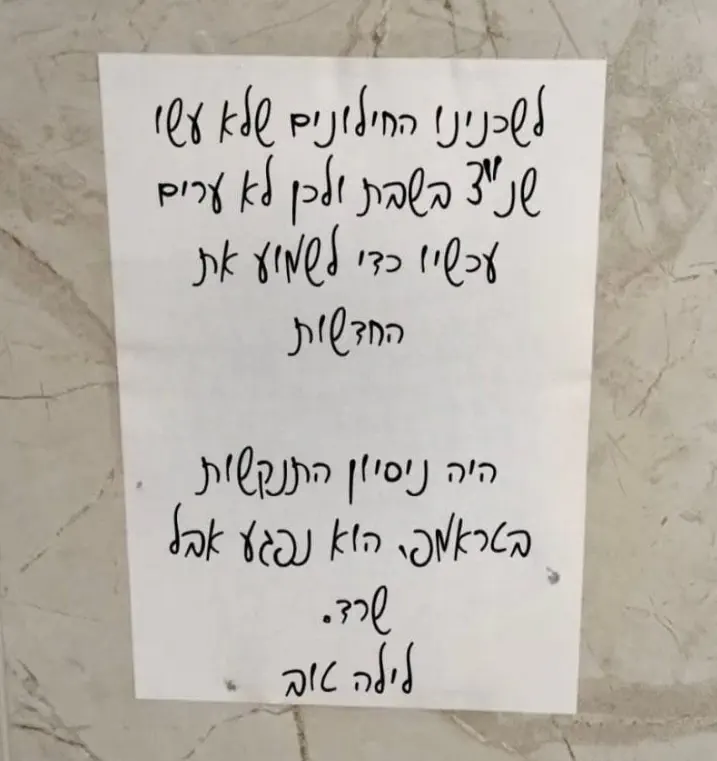 לשכנינו החילונים שלא עשו
שנ"צ בשבת ולכן לא ערים
עכשיו כדי לשמוע את
החדשות
היה ניסיון התנקשות
בטראמפ, הוא נפגע אבל
שרד.
לילה טוב